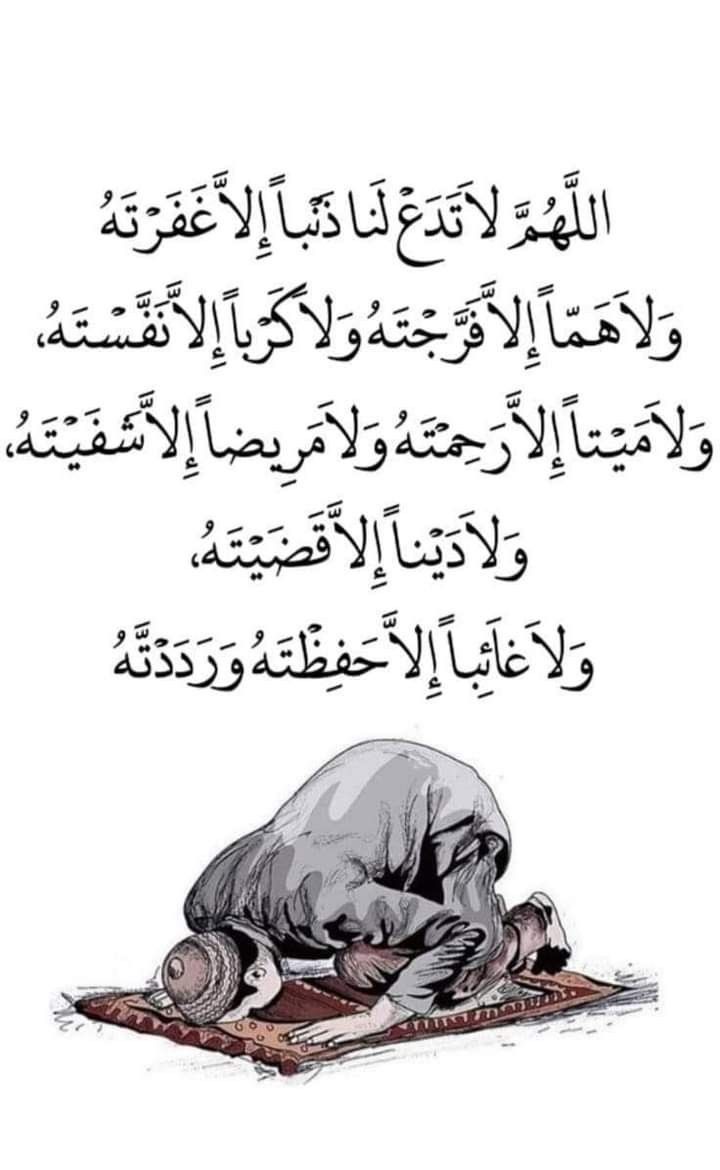 اللَّهُمَّ لاَ تَدَعْ لَنَا ذَنْباً إِلاَّ غَفَرْتَهُ
وَلاَ هَمّاً إِلاَّ فَرَّجْتَهُ وَلاَ كَرْباً إِلاَّ نَفَّسْتَهُ،
وَلاَ مَيْتاً إِلاَّ رَحِمْتَهُ وَلاَ مَرِيضاً إِلاَّ شَفَيْتَهُ،
وَلاَ دَيْناً إِلاَّ قَضَيْتَهُ،
وَلاَ غَائِباً إِلاَّ حَفِظْتَهُ وَرَدَدْتَّهُ